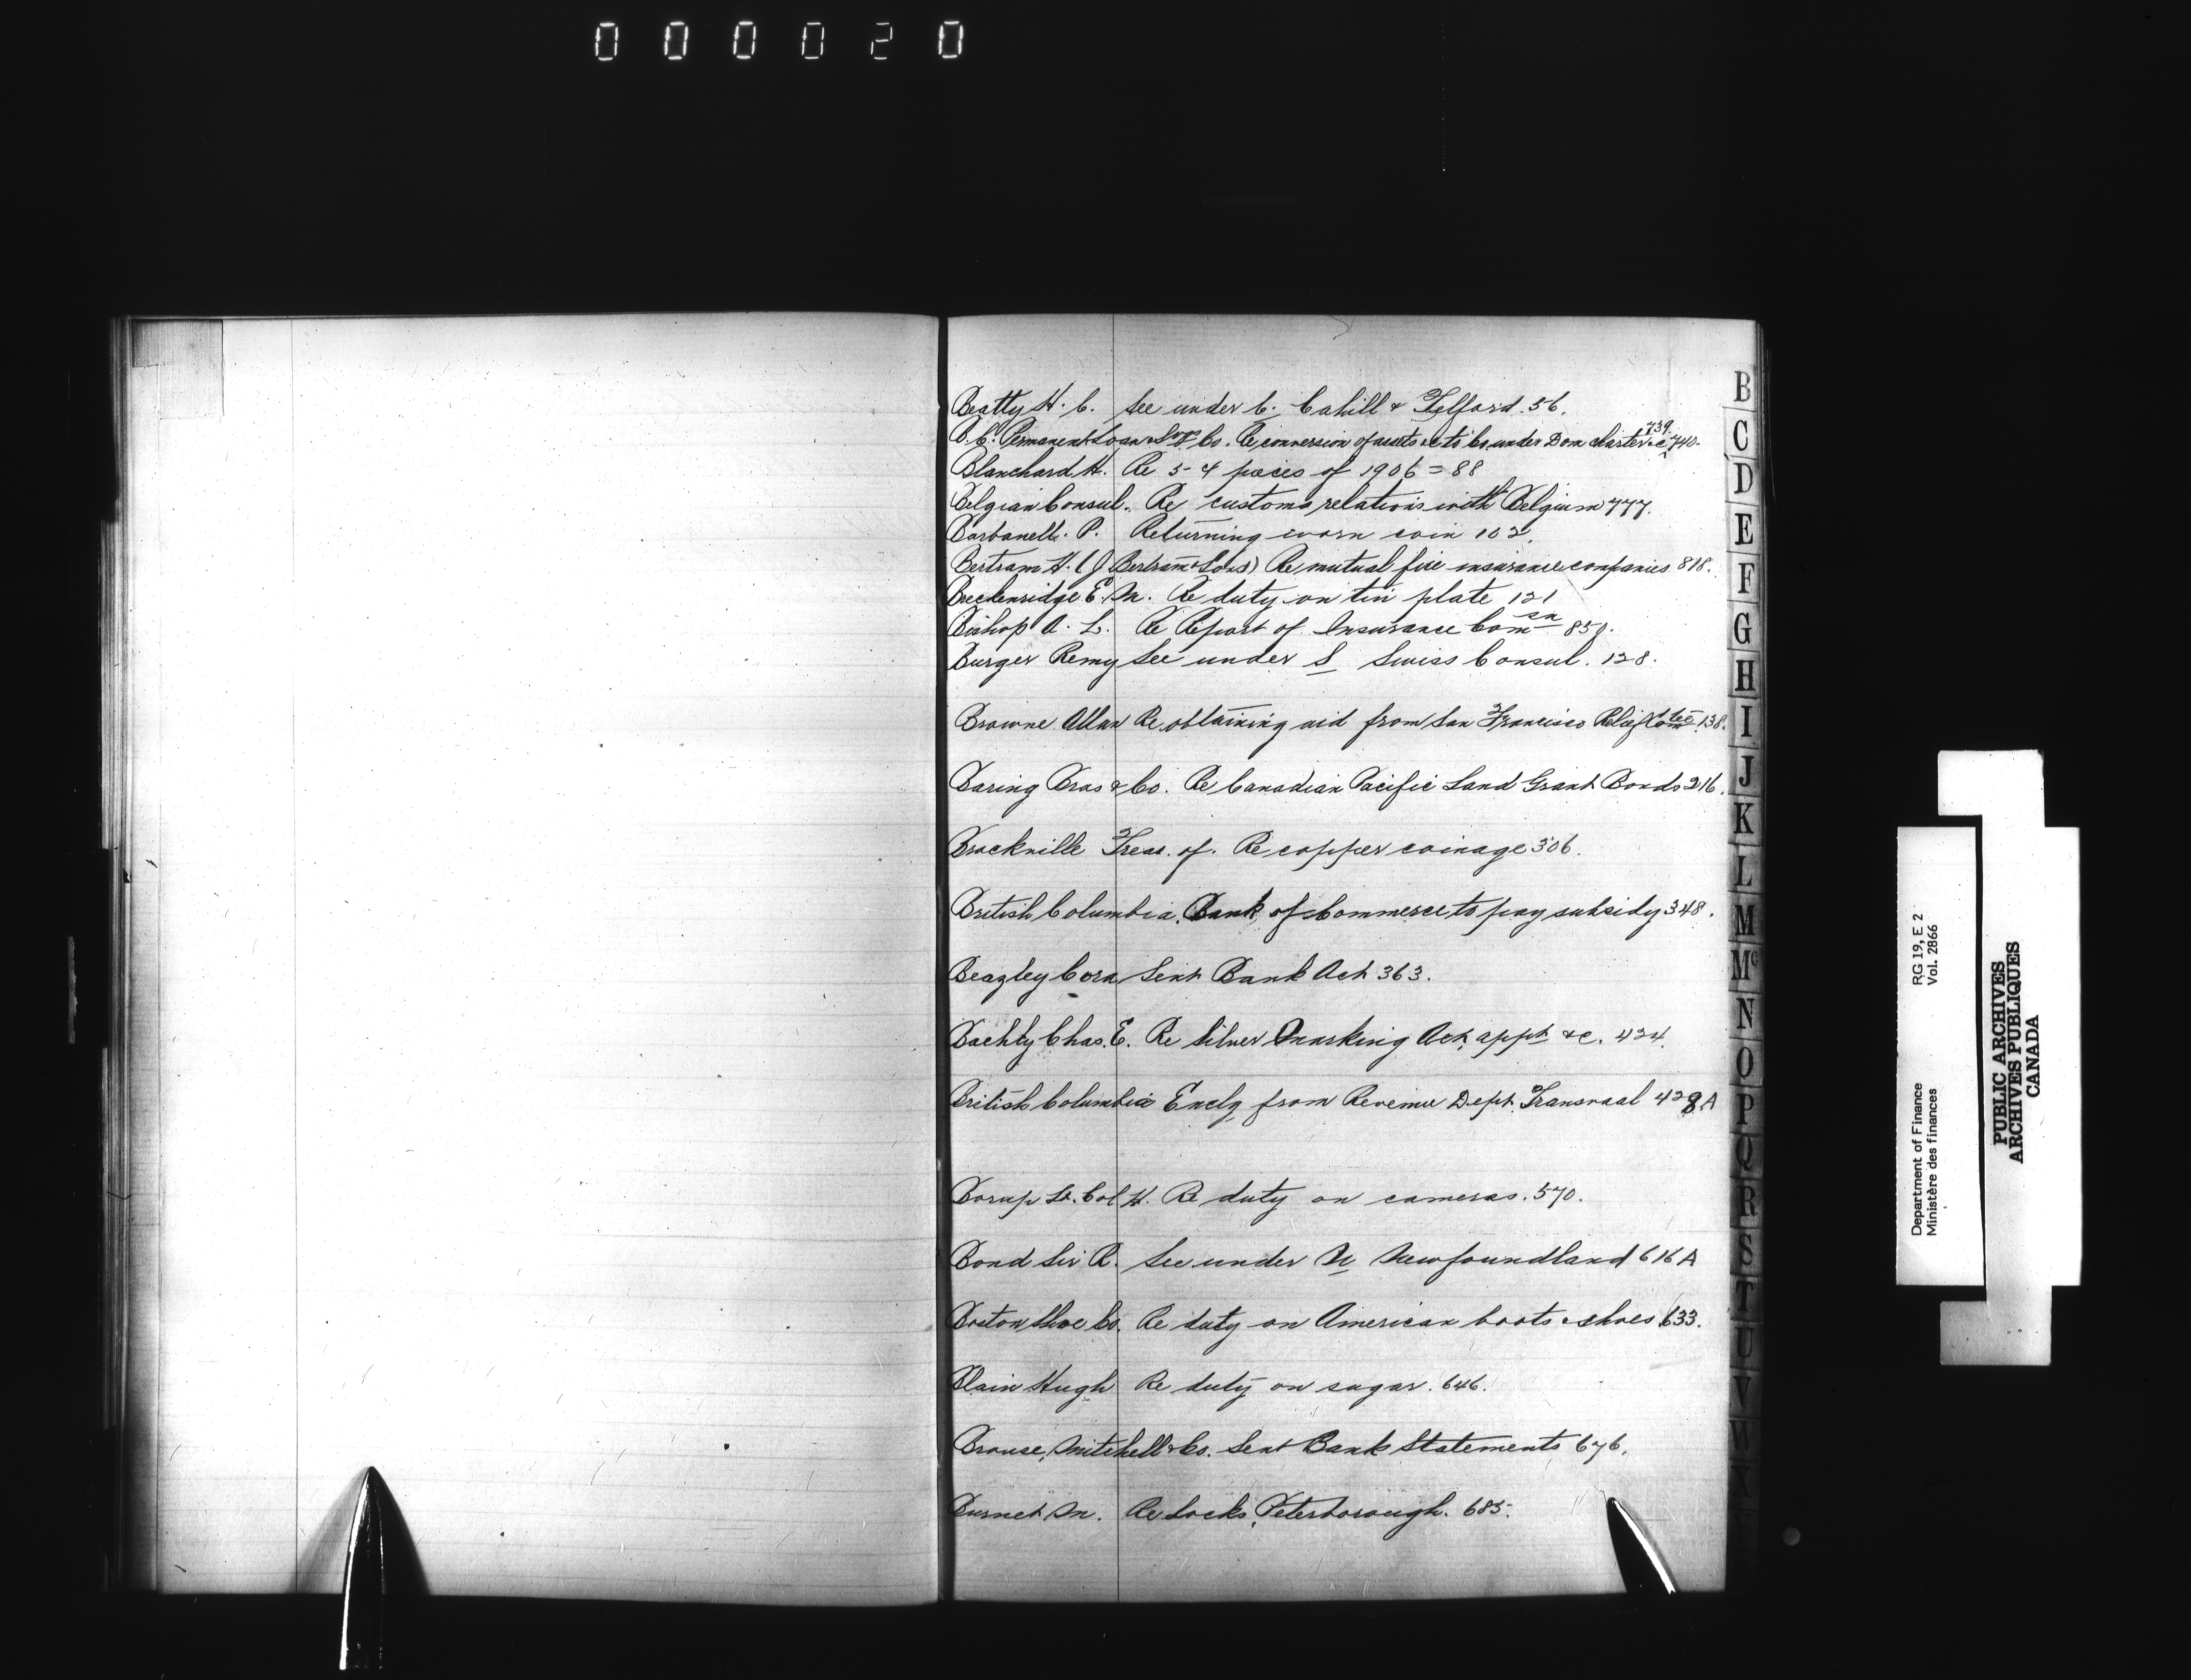 000020
Beatty H. C. See under C. Cahill & Telford. 56.
B.C. Permanent Loan & S'v'g Co. Re conversion of assets &c to Co. under Dom charter &c 739. 740.
Blanchard H. Re 5-4 pieces of 1906 = 88
Belgian Consul. Re customs relations with Belgium 777.
Barbanell. P. Returning worn coin 102.
Bertram H. (J Bertram & Sons) Re mutual fire insurance companies. 818.
Breckenridge E. M. Re duty on tin plate 121
Bishop A. L. Re Report of Insurance Com sn 850.
Burger Remy See under S Swiss Consul. 128.
Browne Allan Re obtaining aid from San Francisco Relief Com tee 138.
Baring Bros & Co. Re Canadian Pacific Land Grant Bonds 216.
Brockville Treas. of. Re copper coinage 306.
British Columbia. Bank of Commerce to pay subsidy 348.
Beazley Cora Sent Bank Act 363.
Bachly Chas. E. Re Silver Marking Act, appt. &c. 424.
British Columbia Encly from Revenue Dept. Transvaal 428A
Borup Lt. Col H. Re duty on cameras. 570.
Bond Sir R. See under N Newfoundland 616A
Boston Shoe Co. Re duty on American boots & shoes 633.
Blain Hugh Re duty on sugar. 646.
Brouse, Mitchell & Co. Sent Bank Statements 676.
Burnet M. Re Locks, Peterborough. 685.
B
C
D
E
F
G
H
I
J
K
L
M
Mc
N
O
P
Q
R
S
T
U
V
W
X
Department of Finance RG 19, E 2
Ministère des finances Vol. 2866
PUBLIC ARCHIVES
ARCHIVES PUBLIQUES
CANADA